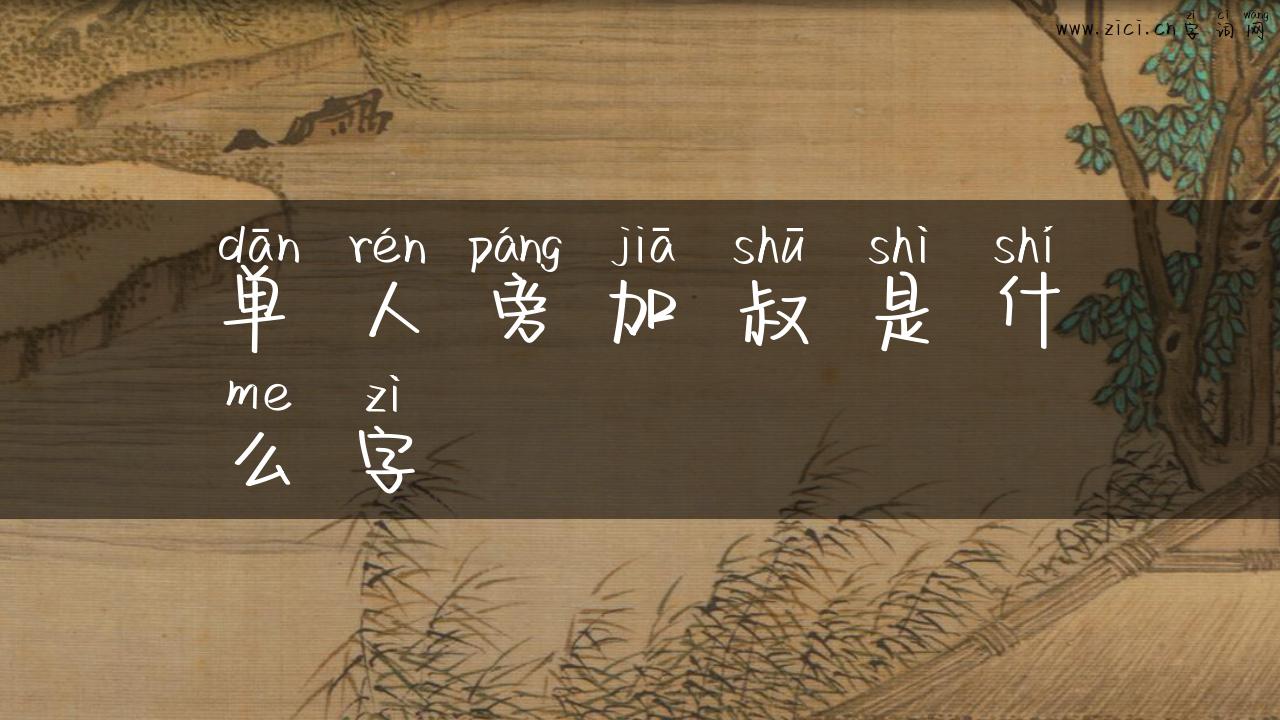 zì cí wǎng
www.zici.cn字词网
dān rén páng jiā shū shì shí
单人旁加叔是什
me zì
么字